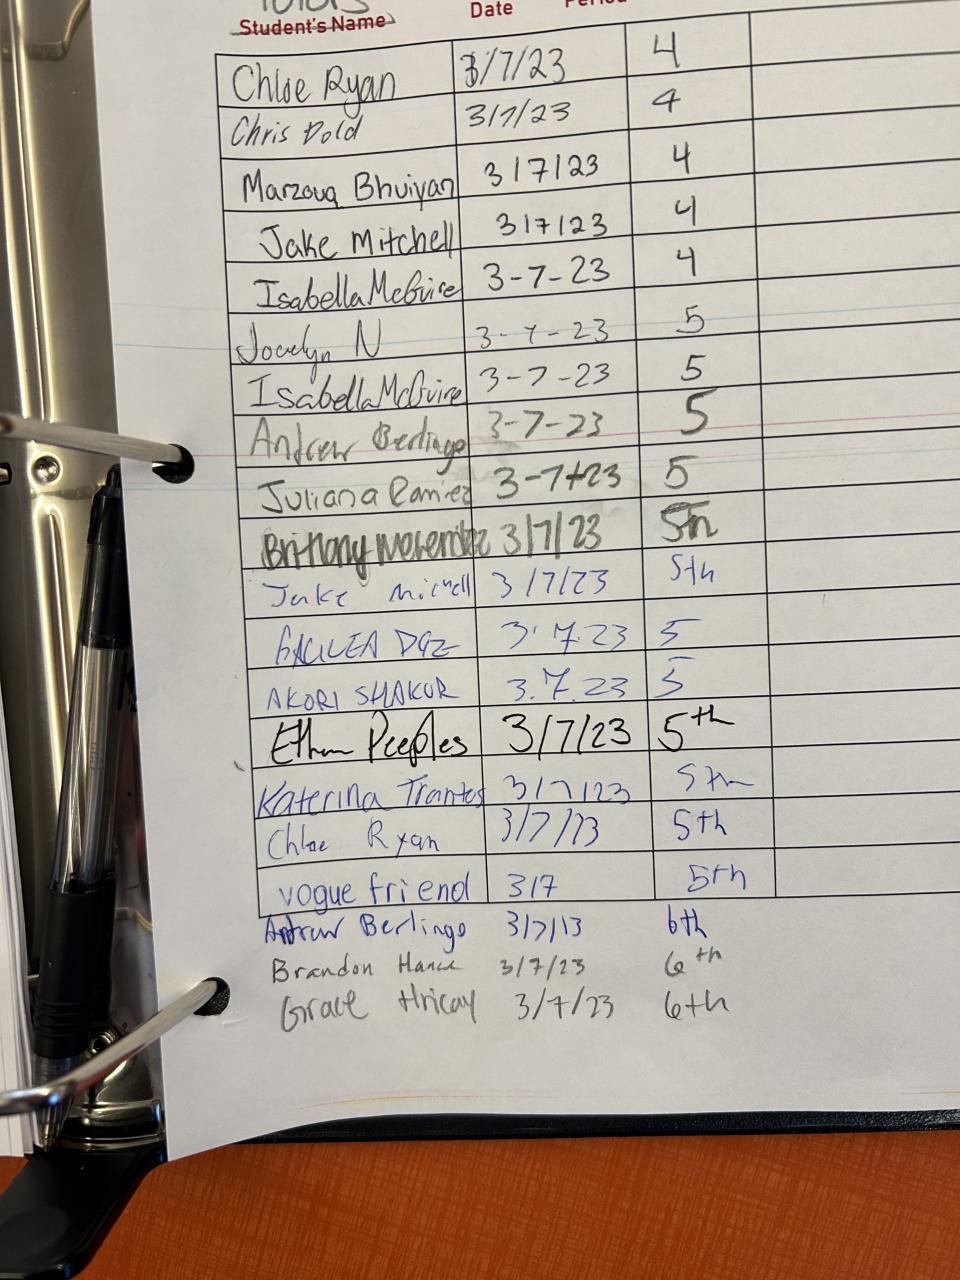 Tutors
Student's Name Date Period
Chloe Ryan 3/7/23 4
Chris Dold 3/7/23 4
Marzouq Bhuiyan 3/7/23 4
Jake Mitchell 3/7/23 4
Isabella McGuire 3-7-23 4
Jocelyn N 3-7-23 5
Isabella McGuire 3-7-23 5
Andrew Berlingo 3-7-23 5
Juliana Ramirez 3-7-23 5
Brittany 3/7/23 5th
Jake Michell 3/7/23 5th
GALILEA DIAZ 3.7.23 5
AKORI SHAKUR 3.7.23 5
Ethan Peeples 3/7/23 5th
Katerina Trantos 3/7/23 5th
Chloe Ryan 3/7/23 5th
vogue friend 3/7 5th
Andrew Berlingo 3/7/13 6th
Brandon Hance 3/7/23 6th
Grace Hricay 3/7/23 6th